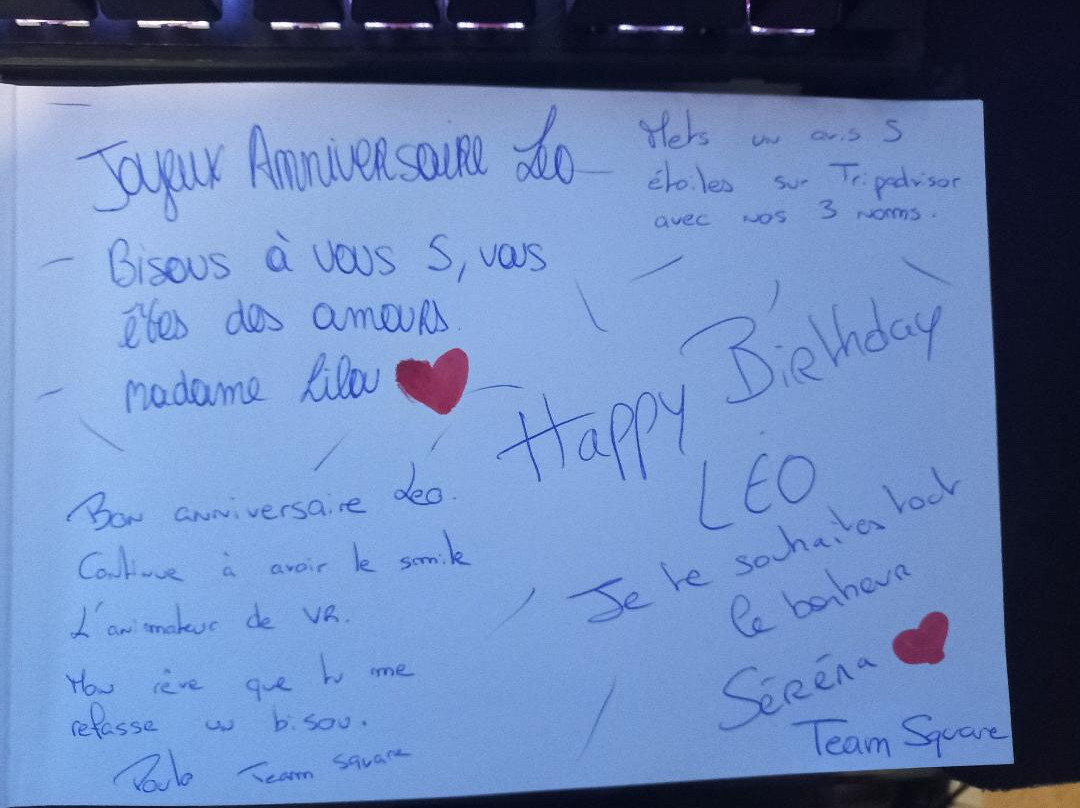 Joyeux Anniversaire Leo
Bisous à vous 5, vous
êtes des amours.
Madame Lilou
Mets un avis 5
étoiles sur Tripadvisor
avec nos 3 noms.
Happy Birthday
LÉO
Je te souhaites tout
le bonheur
Séréna
Team Square
Bon anniversaire Leo.
Continue à avoir le smile
L'animateur de VR.
Mon rêve que tu me
refasse un bisou.
Paulo Team square